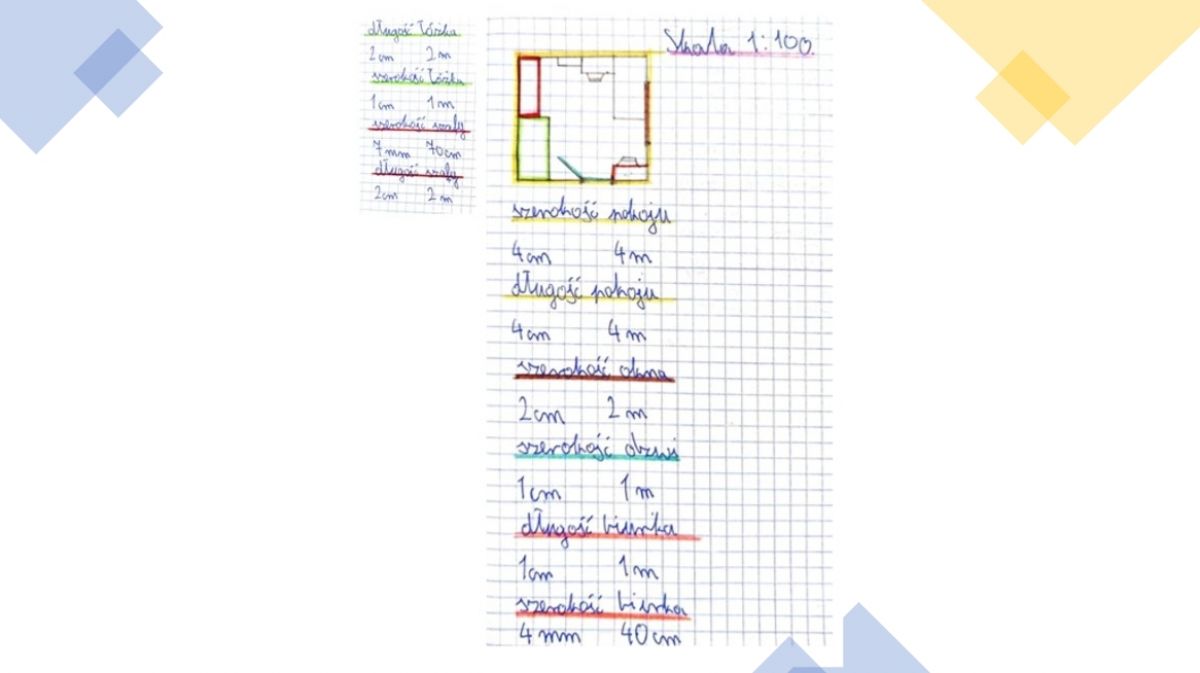 długość łóżka
2cm 2m
szerokość łóżka
1cm 1m
szerokość szafy
7mm 70cm
długość szafy
2cm 2m
Skala 1:100.
szerokość pokoju
4cm 4m
długość pokoju
4cm 4m
szerokość okna
2cm 2m
szerokość drzwi
1cm 1m
długość biurka
1cm 1m
szerokość biurka
4mm 40cm